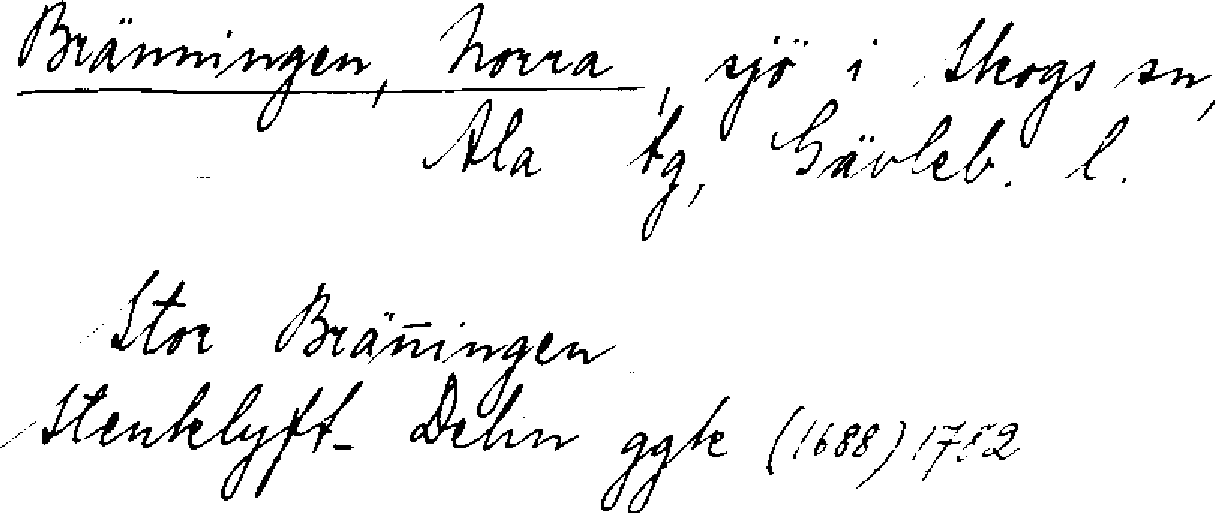 Bränningen, Norra, sjö i Skogs sn,
Ala tg, Gävleb. l.
Stor Brän̄ingen
Stenklyft- Delin ggk (1688) 1752